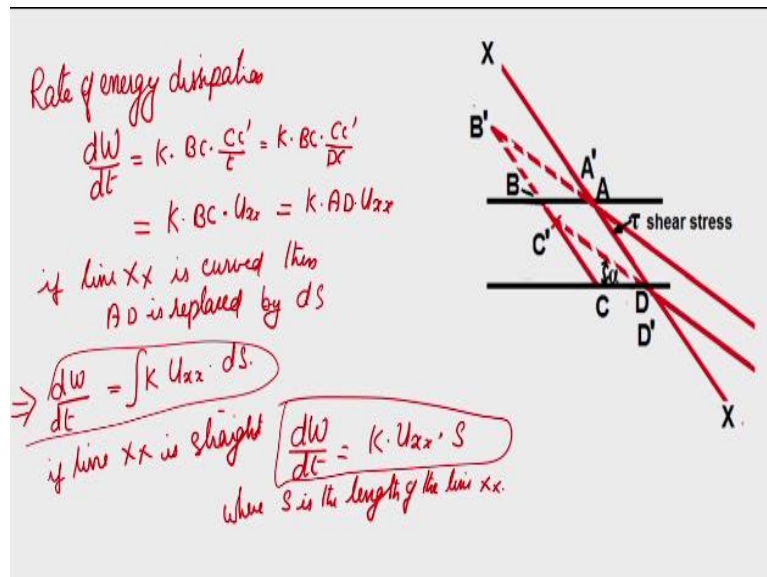 Rate of energy dissipation
dW/dt = K. BC. CC'/t = K. BC. CC'/DC
= K. BC. Uxx = K. AD. Uxx
if line XX is curved then
AD is replaced by dS
⇒ dW/dt = ∫K Uxx. dS.
if line XX is straight dW/dt = K. Uxx. S
where S is the length of the line XX.
X
B'
A'
B
A
τ shear stress
C'
δα
C
D
D'
X